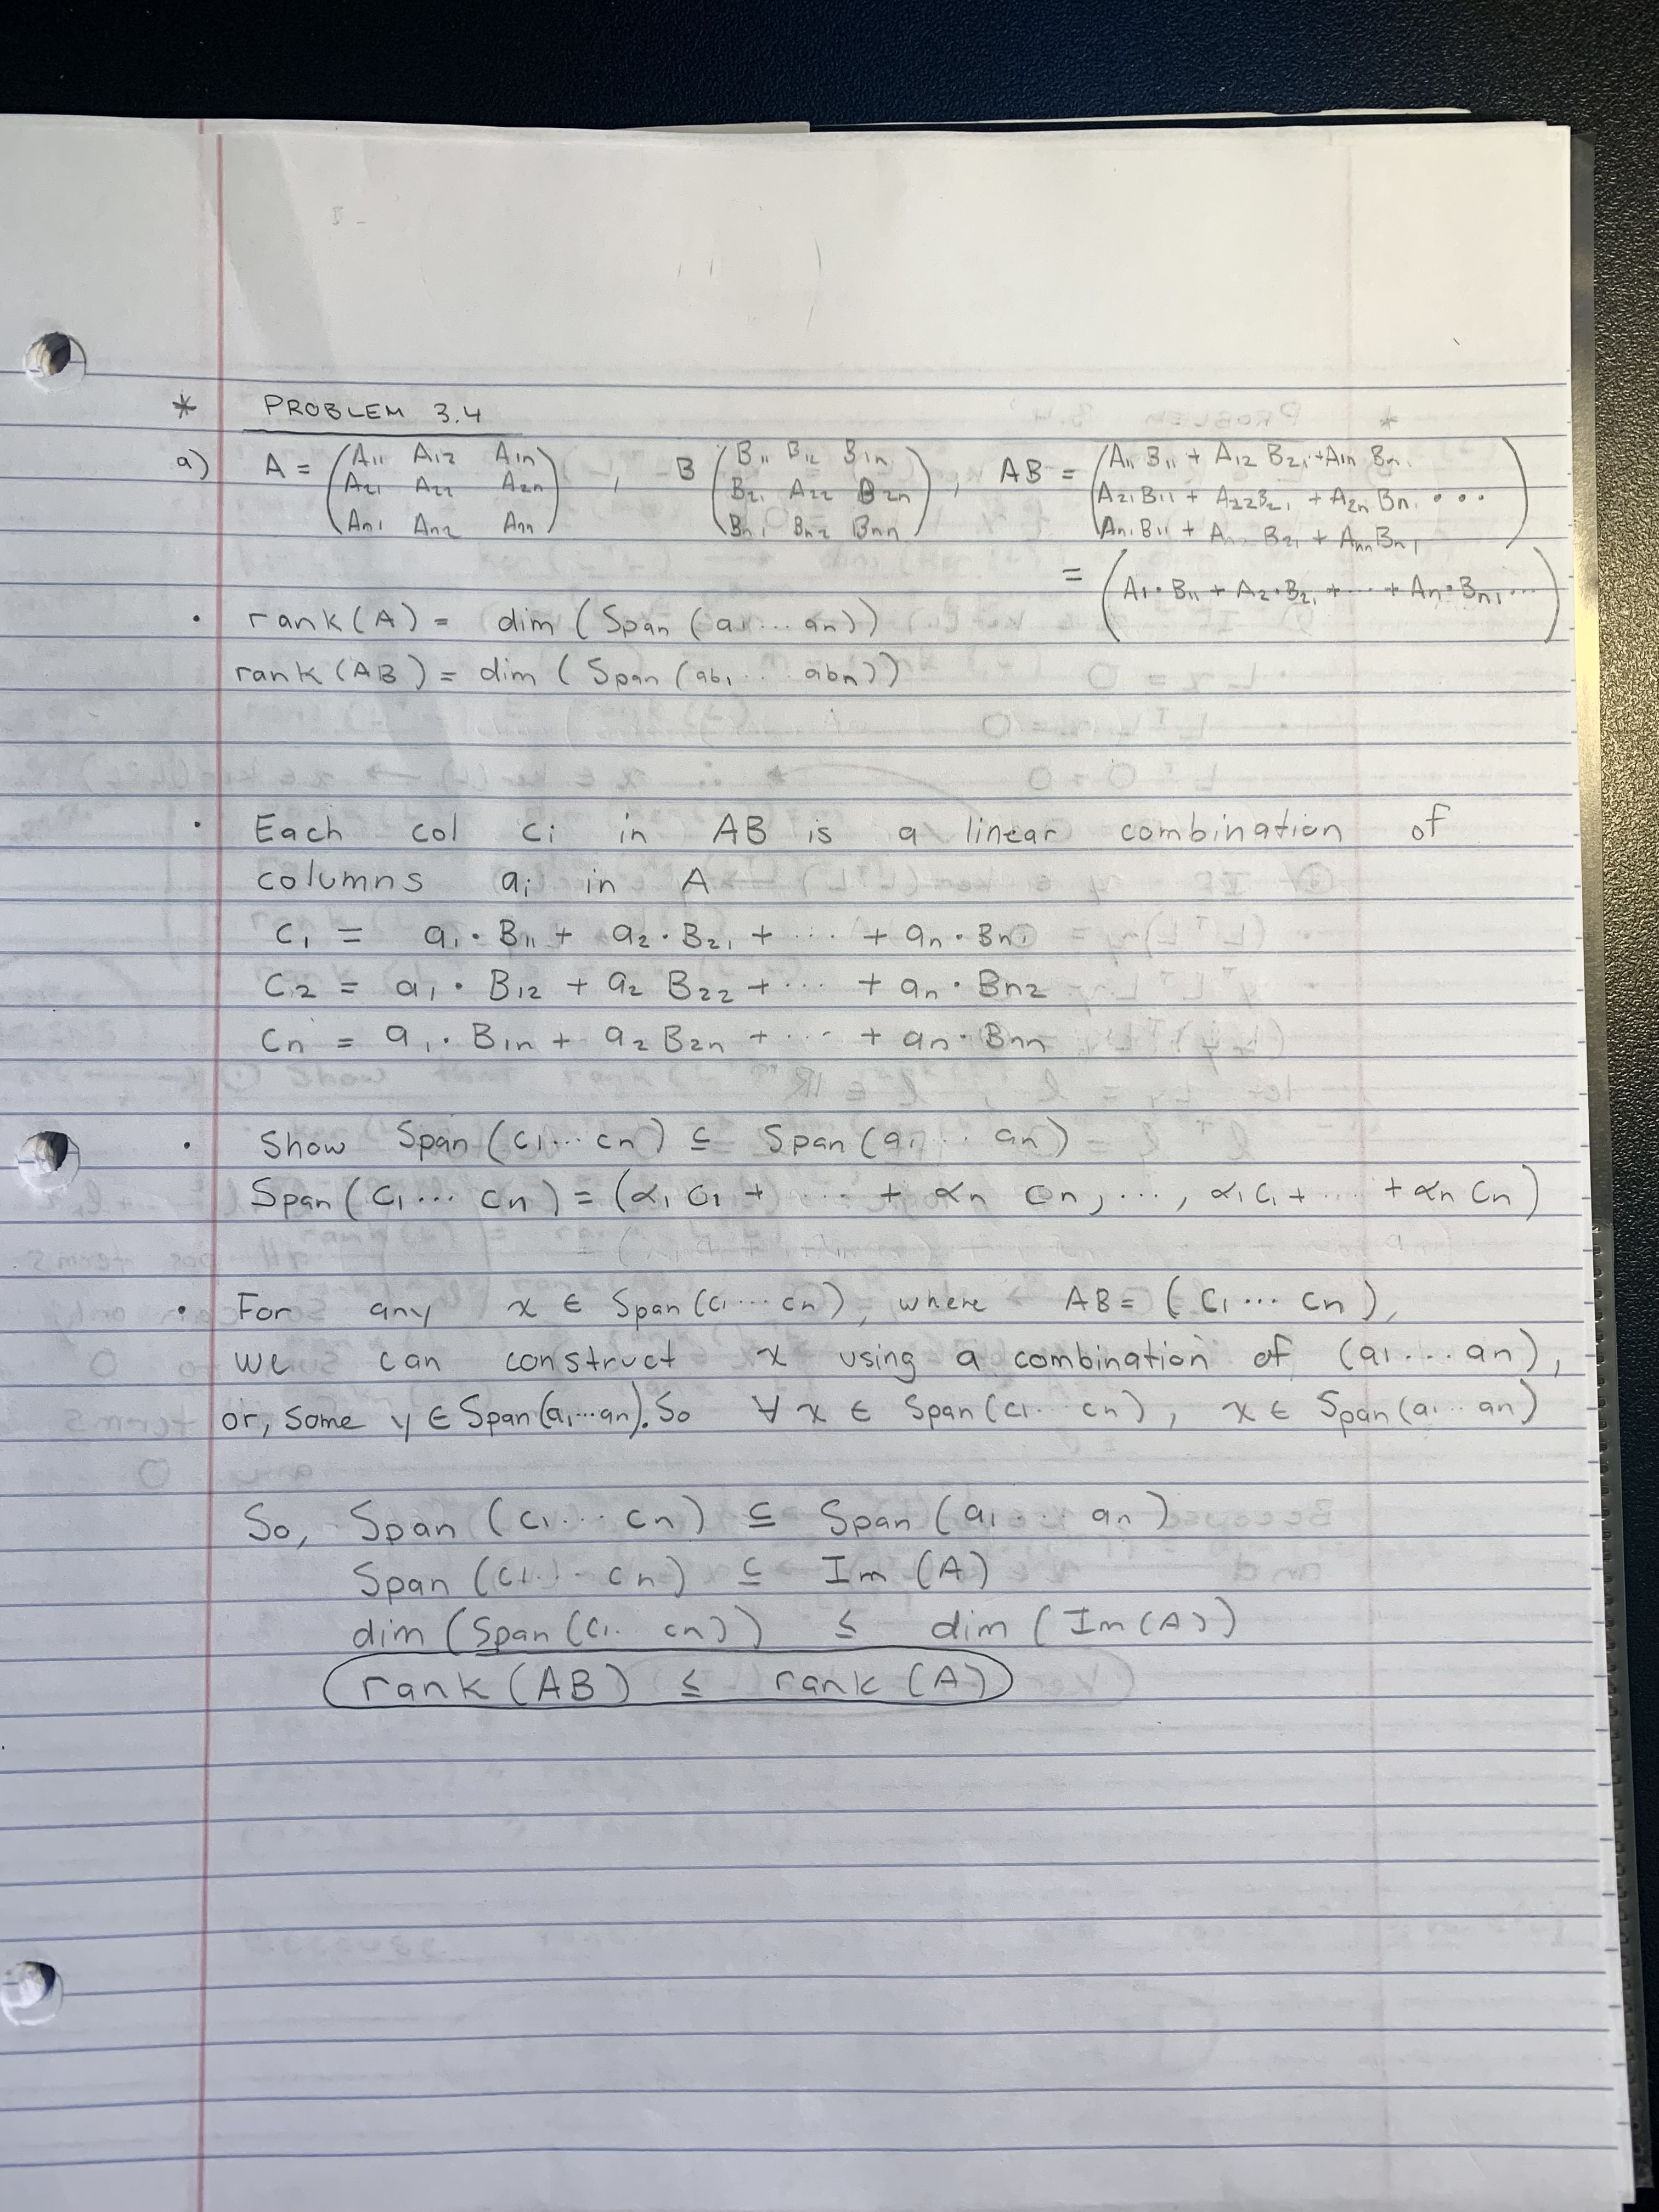 * PROBLEM 3.4
a) A = (A11 A12 A1n , B (B11 B12 B1n , AB = (A11 B11 + A12 B21 + A1n Bn1
A21 A22 A2n B21 A22 B2n A21 B11 + A22 B21 + A2n Bn1 ...
An1 An2 Ann) Bn1 Bn2 Bnn) An1 B11 + An2 B21 + Ann Bn1)
= (A1 · B11 + A2 · B21 + ··· + An · Bn1 ...)
• rank(A) = dim (Span (a1 ... an))
rank(AB) = dim (Span (ab1 ... abn))
• Each col ci in AB is a linear combination of
columns ai in A
c1 = a1 · B11 + a2 · B21 + ··· + an · Bn1
C2 = a1 · B12 + a2 B22 + ··· + an · Bn2
Cn = a1 · B1n + a2 B2n + ··· + an · Bnn
• Show Span (c1 ... cn) ⊆ Span (a1 ... an)
Span (c1 ... cn) = (α1 C1 + ... + αn Cn, ..., α1 C1 + ... + αn Cn)
• For any x ∈ Span (c1 ... cn), where AB = (C1 ... Cn),
we can construct x using a combination of (a1 ... an),
or, some y ∈ Span (a1 ... an). So ∀ x ∈ Span (c1 ... cn), x ∈ Span (a1 ... an)
So, Span (c1 ... cn) ⊆ Span (a1 ... an)
Span (c1 ... cn) ⊆ Im (A)
dim (Span (c1 .. cn)) ≤ dim (Im (A))
rank (AB) ≤ rank (A)